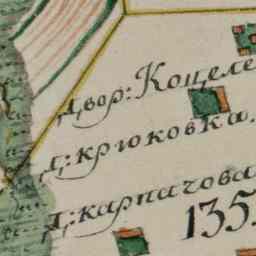 Двор: Коцеле
Д: крюковка.
Д: карпачова
135